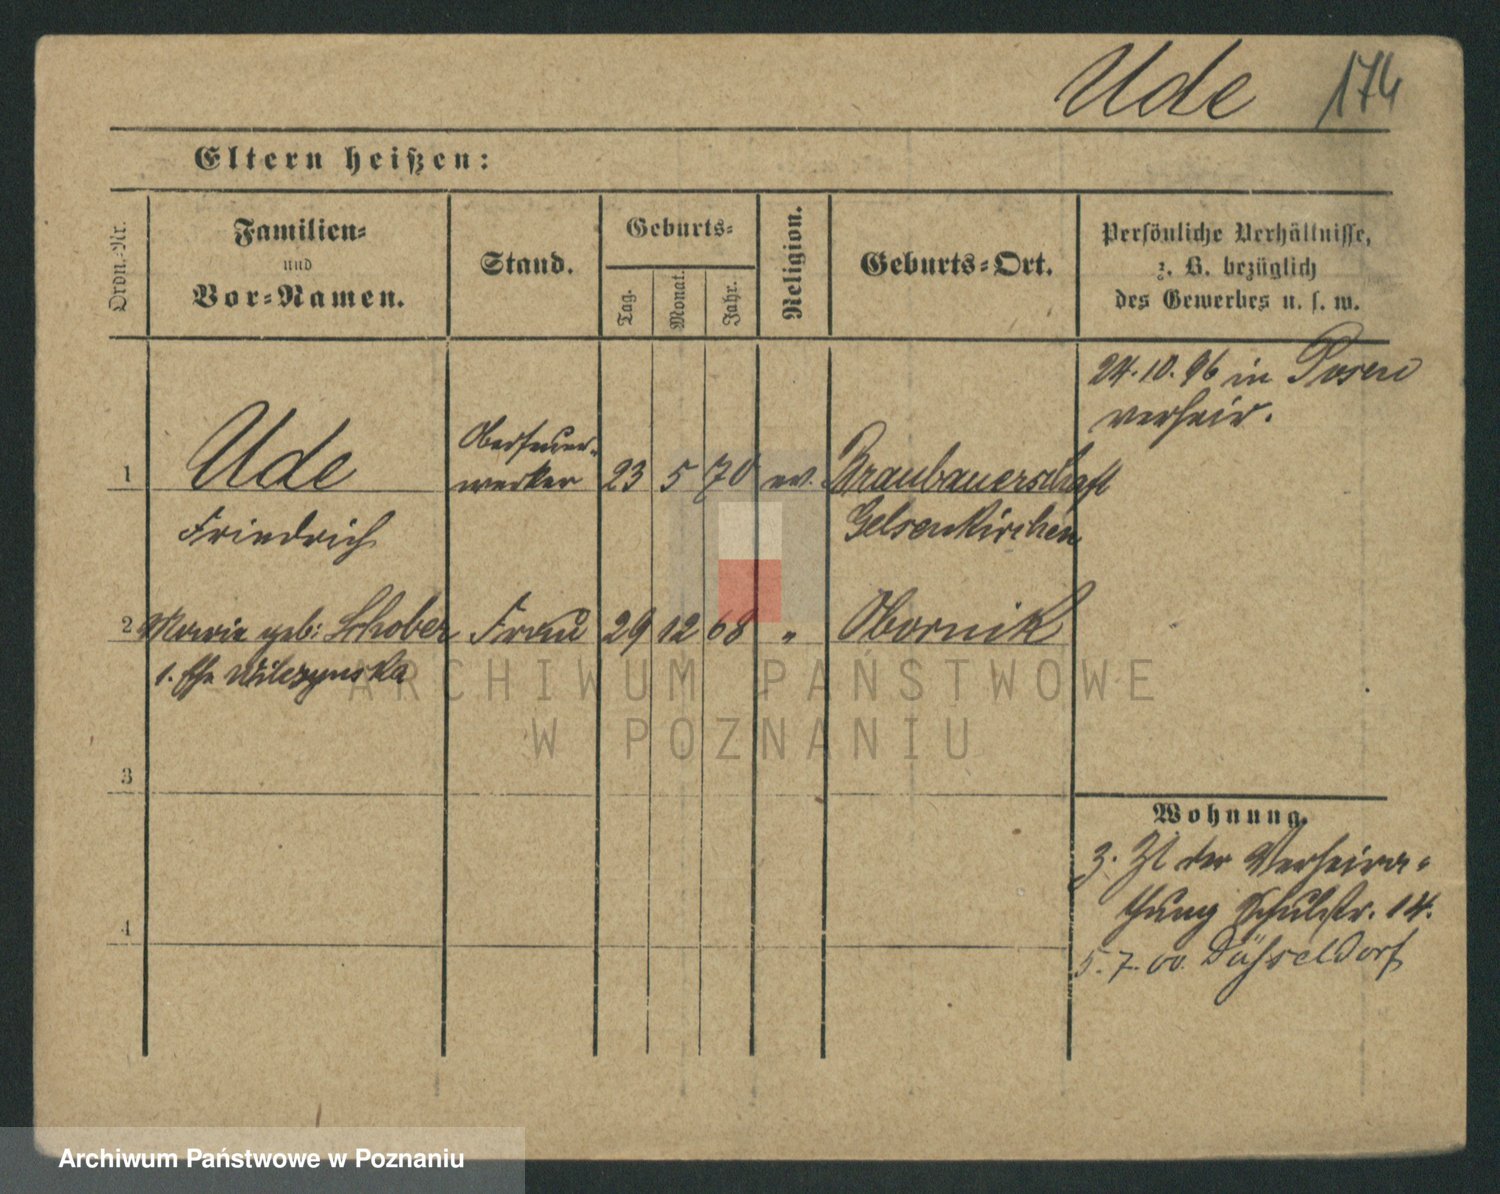 Ude 174
Eltern heißen:
Ordn.-Nr.
Familien-
und
Vor-Namen.
Stand.
Geburts-
Tag.
Monat.
Jahr.
Religion.
Geburts-Ort.
Persönliche Verhältnisse,
z. B. bezüglich
des Gewerbes u. s. w.
24.10.96 in Posen
verheir.
1 Ude Oberfeuer-
werker 23 5 70 ev. Braubauerschaft
Friedrich Gelsenkirchen
2 Marie geb: Schober Frau 29 12 68 " Obornik
1. Ehe Wilczynska
ARCHIWUM PAŃSTWOWE
W POZNANIU
3
Wohnung.
z. Zt der Verheira-
thung Schulstr. 14.
4
5.7.00. Düsseldorf
Archiwum Państwowe w Poznaniu